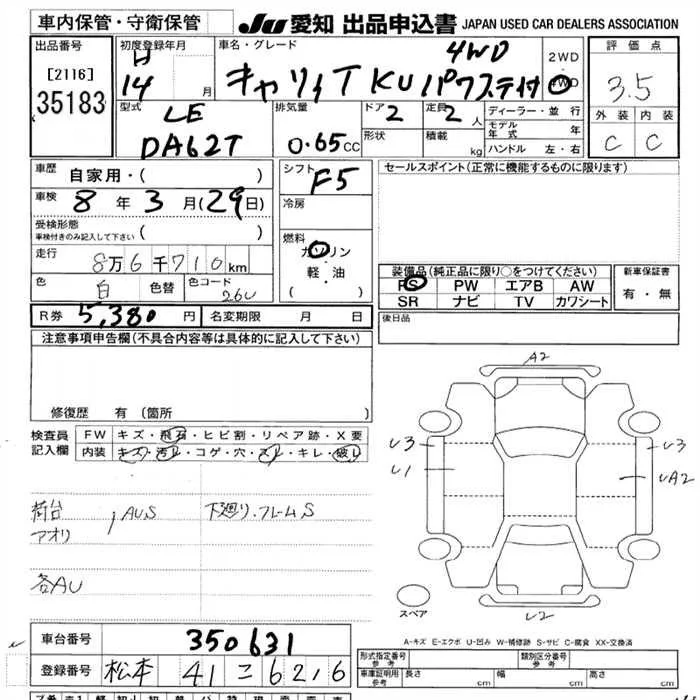 車内保管・守衛保管
JU 愛知 出品申込書 JAPAN USED CAR DEALERS ASSOCIATION
出品番号
[2116]
35183
初度登録年月
H
14 月
車名・グレード
4WD
キャリィT KU パワステ付
2WD
4WD
評価点
3.5
外装 内装
C C
型式
LE
DA62T
排気量
0.65cc
ドア 2
形状
定員 2 人
積載 kg
ディーラー・並行
モデル年式 年
ハンドル 左・右
車歴
自家用・( )
車検 8年 3月(29日)
受検形態
車検付きのみ記入して下さい ( )
走行
8万6千710km
色 白 色替 色コード 26U
シフト
F5
冷房
燃料
ガソリン
・
軽・油
( )
セールスポイント(正常に機能するものに限ります)
装備品(純正品に限り○をつけてください)
PS PW エアB AW
SR ナビ TV カワシート
新車保証書
有・無
R券 5,380円 名変期限 月 日
後日品
注意事項申告欄(不具合内容等は具体的に記入して下さい)
修復歴 有(箇所
検査員記入欄
FW キズ・飛石・ヒビ割・リペア跡・X要
内装 キズ・汚レ・コゲ・穴・スレ・キレ・破レ
荷台
アオリ
AU.S
下廻り.フレームS
各AU
A2
U3
U1
U3
UA2
U2
スペア
A-キズ E-エクボ U-凹み W-補修跡 S-サビ C-腐食 XX-交換済
車台番号 350631
登録番号 松本 41 こ 6216
形式指定番号
参考
類別区分番号
参考
車庫証明用
参考
長さ cm 幅 cm 高さ cm